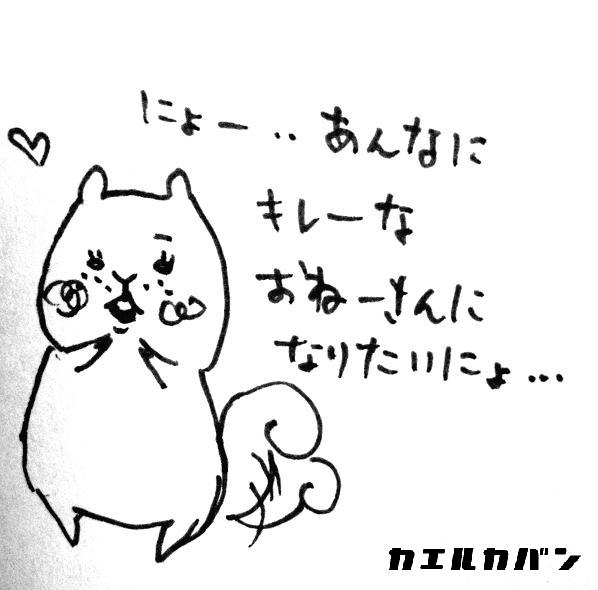 にょー‥あんなに
キレーな
おねーさんに
なりたいにょ…
カエルカバン